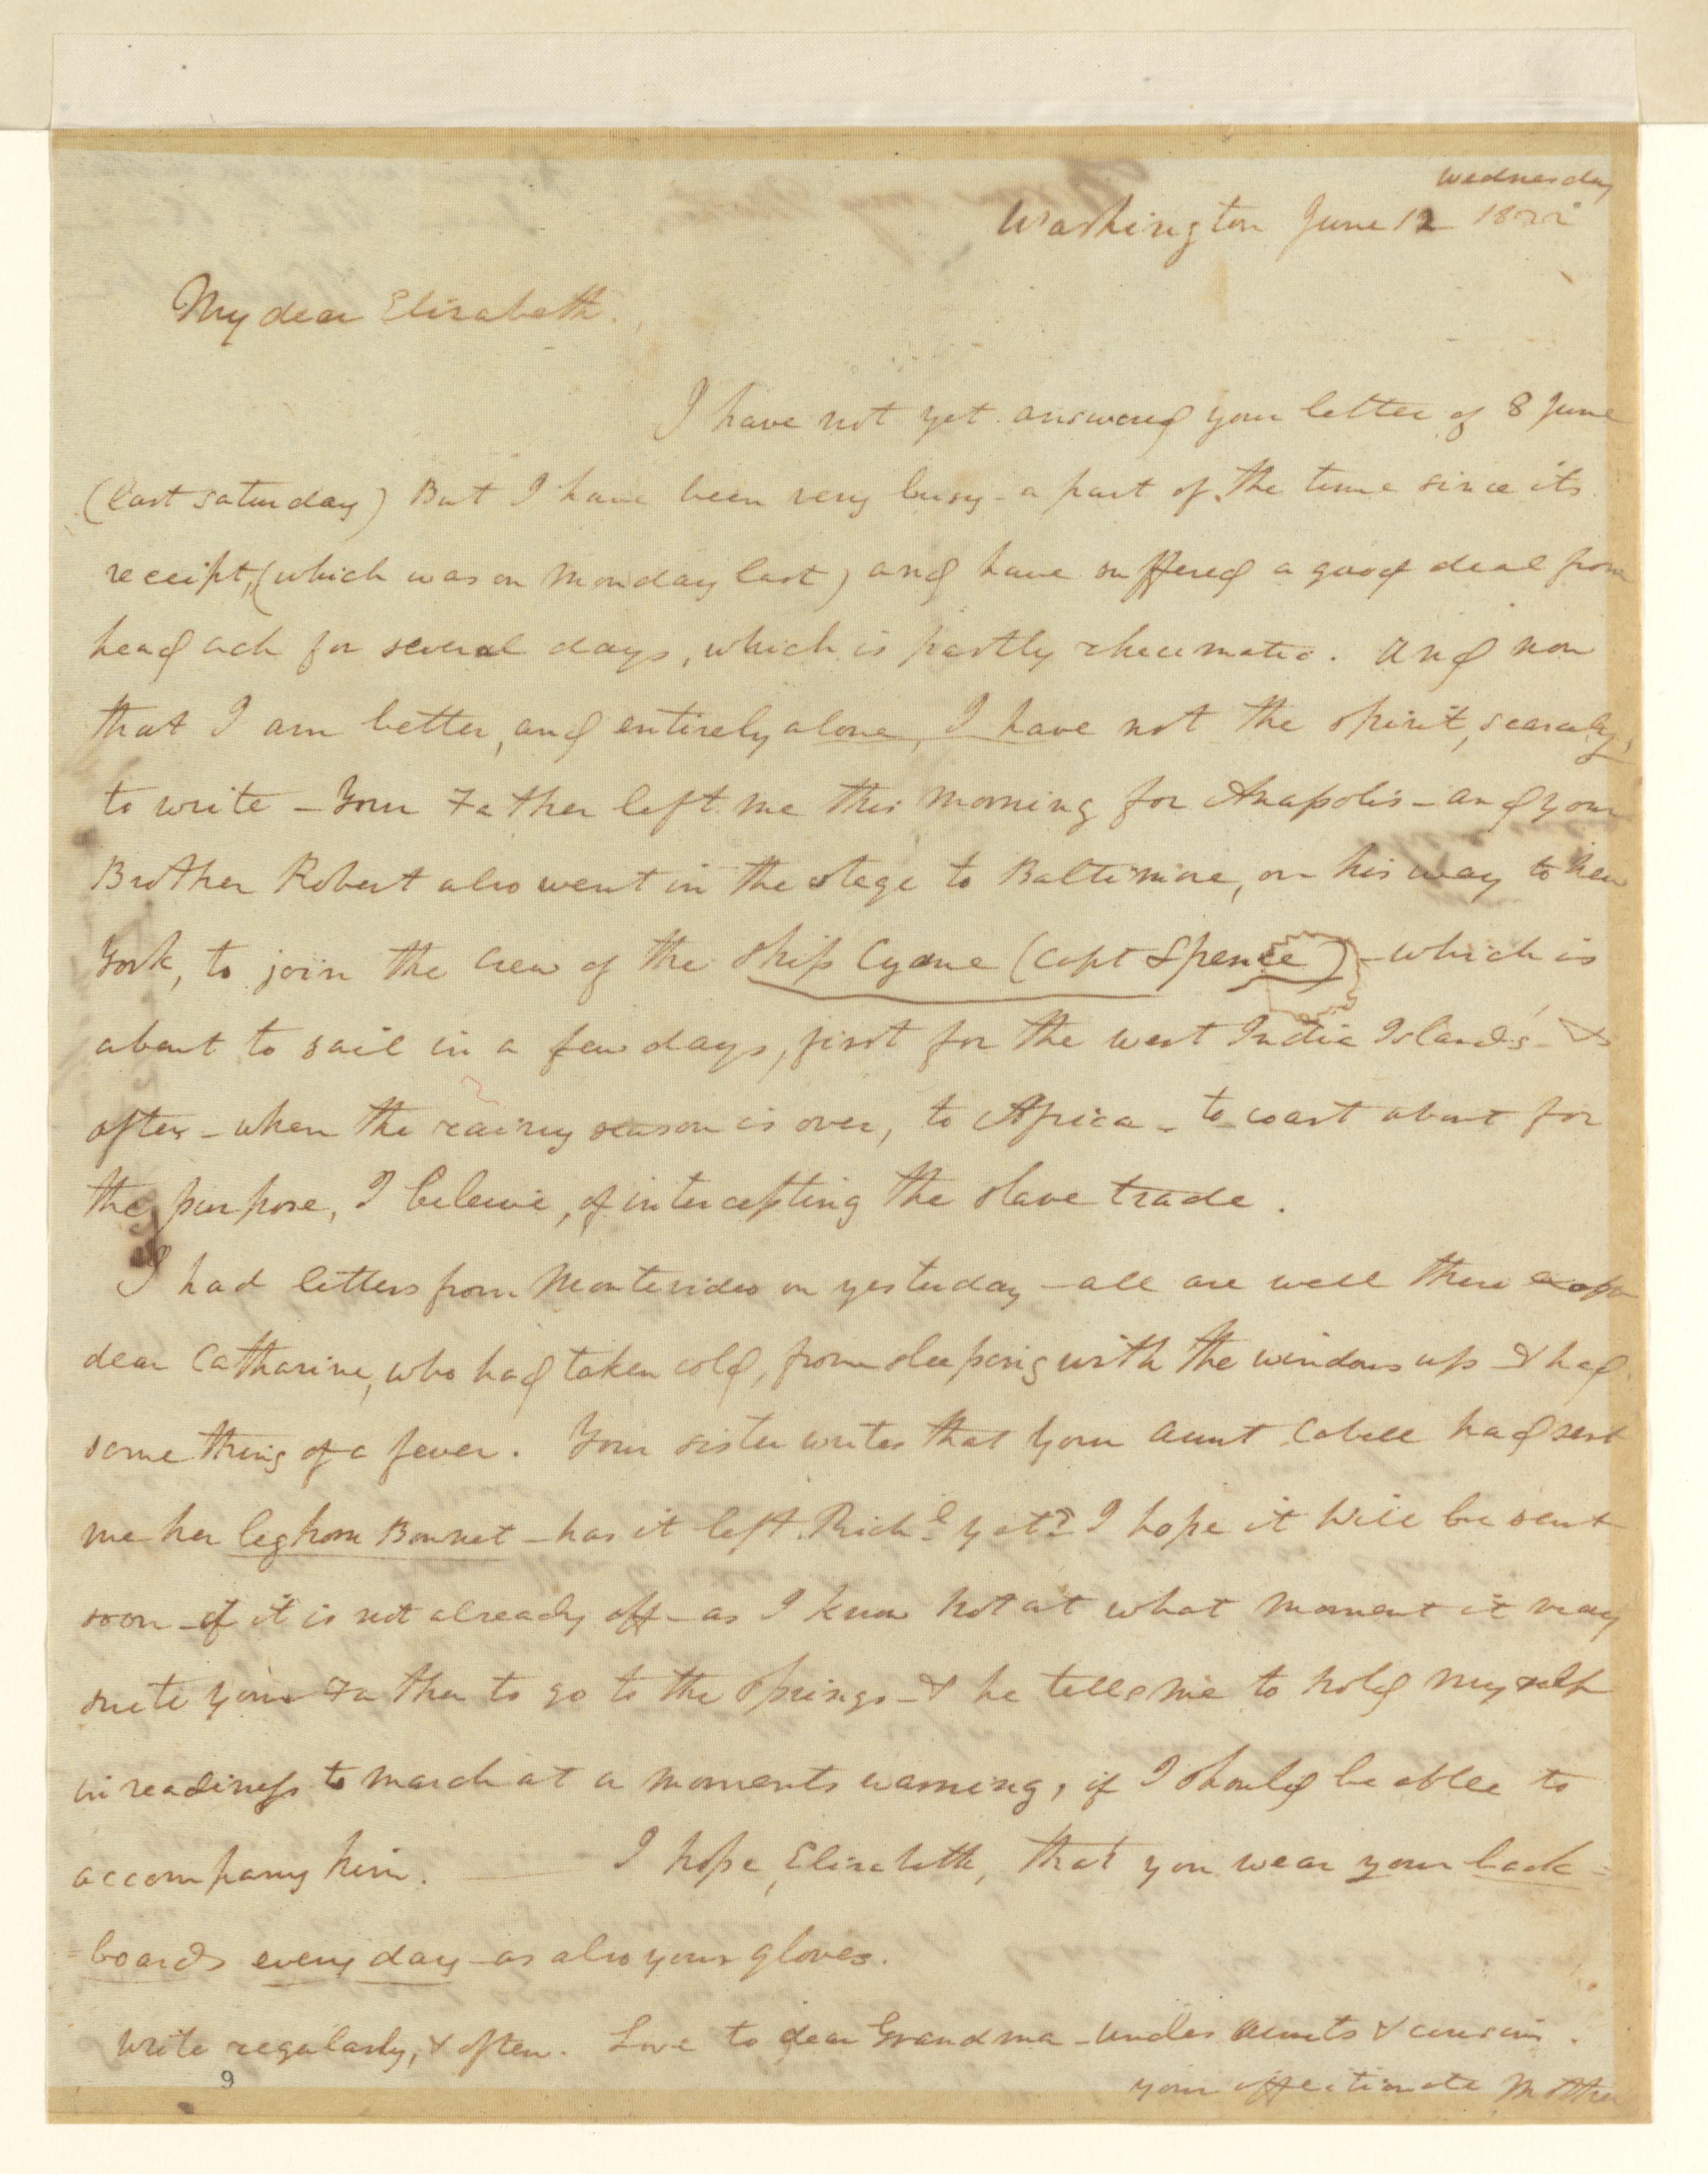 Wednesday
Washington June 12 1822
My dear Elizabeth.
I have not yet answered your letter of 8 June
(last saturday) But I have been very busy - a part of the time since its
receipt, (which was on Monday last) and have suffered a good deal from
head ach for several days, which is partly rheumatic. And now
that I am better, and entirely alone, I have not the spirit, scarcely,
to write - Your Father left me this morning for Anapolis - and your
Brother Robert also went in the stage to Baltimore, on his way to New
York, to join the crew of the ship Cyane (Capt Spence) - which is
about to sail in a few days, first for the west India Islands - &
after - when the rainy season is over, to Africa - to coast about for
the purpose, I beleive, of intercepting the slave trade.
I had letters from Montevideo on yesterday - all are well there
dear Catharine, who had taken cold, from sleeping with the windows up & had
some thing of a fever. Your sister writes that your aunt Cabell had sent
me her leghorn Bonnet - has it left Richd yet? I hope it will be sent
soon - if it is not already off - as I know not at what moment it may
suite your Father to go to the springs - & he tells me to hold myself
in readiness to march at a moments warning, if I should be able to
accompany him. — I hope, Elizabeth, that you wear your back =
= boards every day - as also your gloves.
write regularly, & often. Love to dear Grandma - Uncles Aunts & cousins.
9 your affectionate Mother